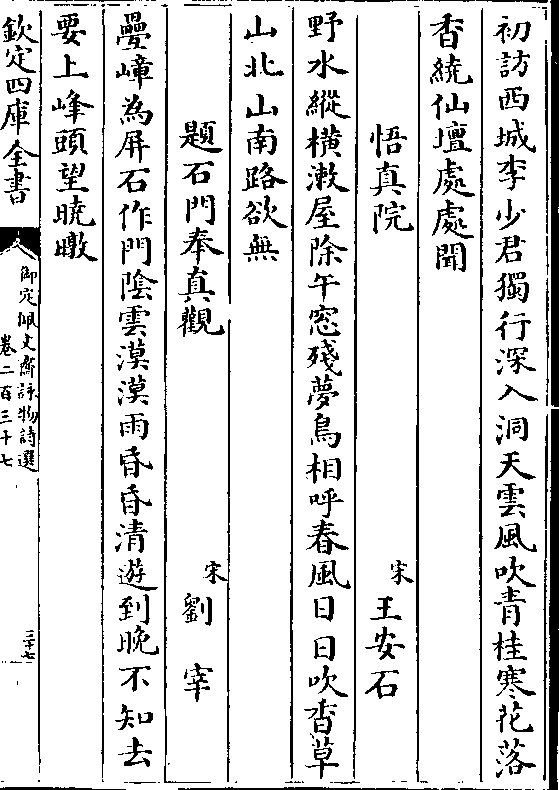 初訪西城李少君獨行深入洞天雲風吹青桂寒花落
香繞仙壇處處聞
悟真院
宋王安石
野水縱横漱屋除午窓殘夢鳥相呼春風日日吹香草
山北山南路欲無
題石門奉真觀
宋劉宰
疊嶂為屏石作門陰雲漠漠雨昏昏清遊到晩不知去
要上峰頭望曉暾
欽定四庫全書
御定佩文齋詠物詩選
卷二百三十七
三十七